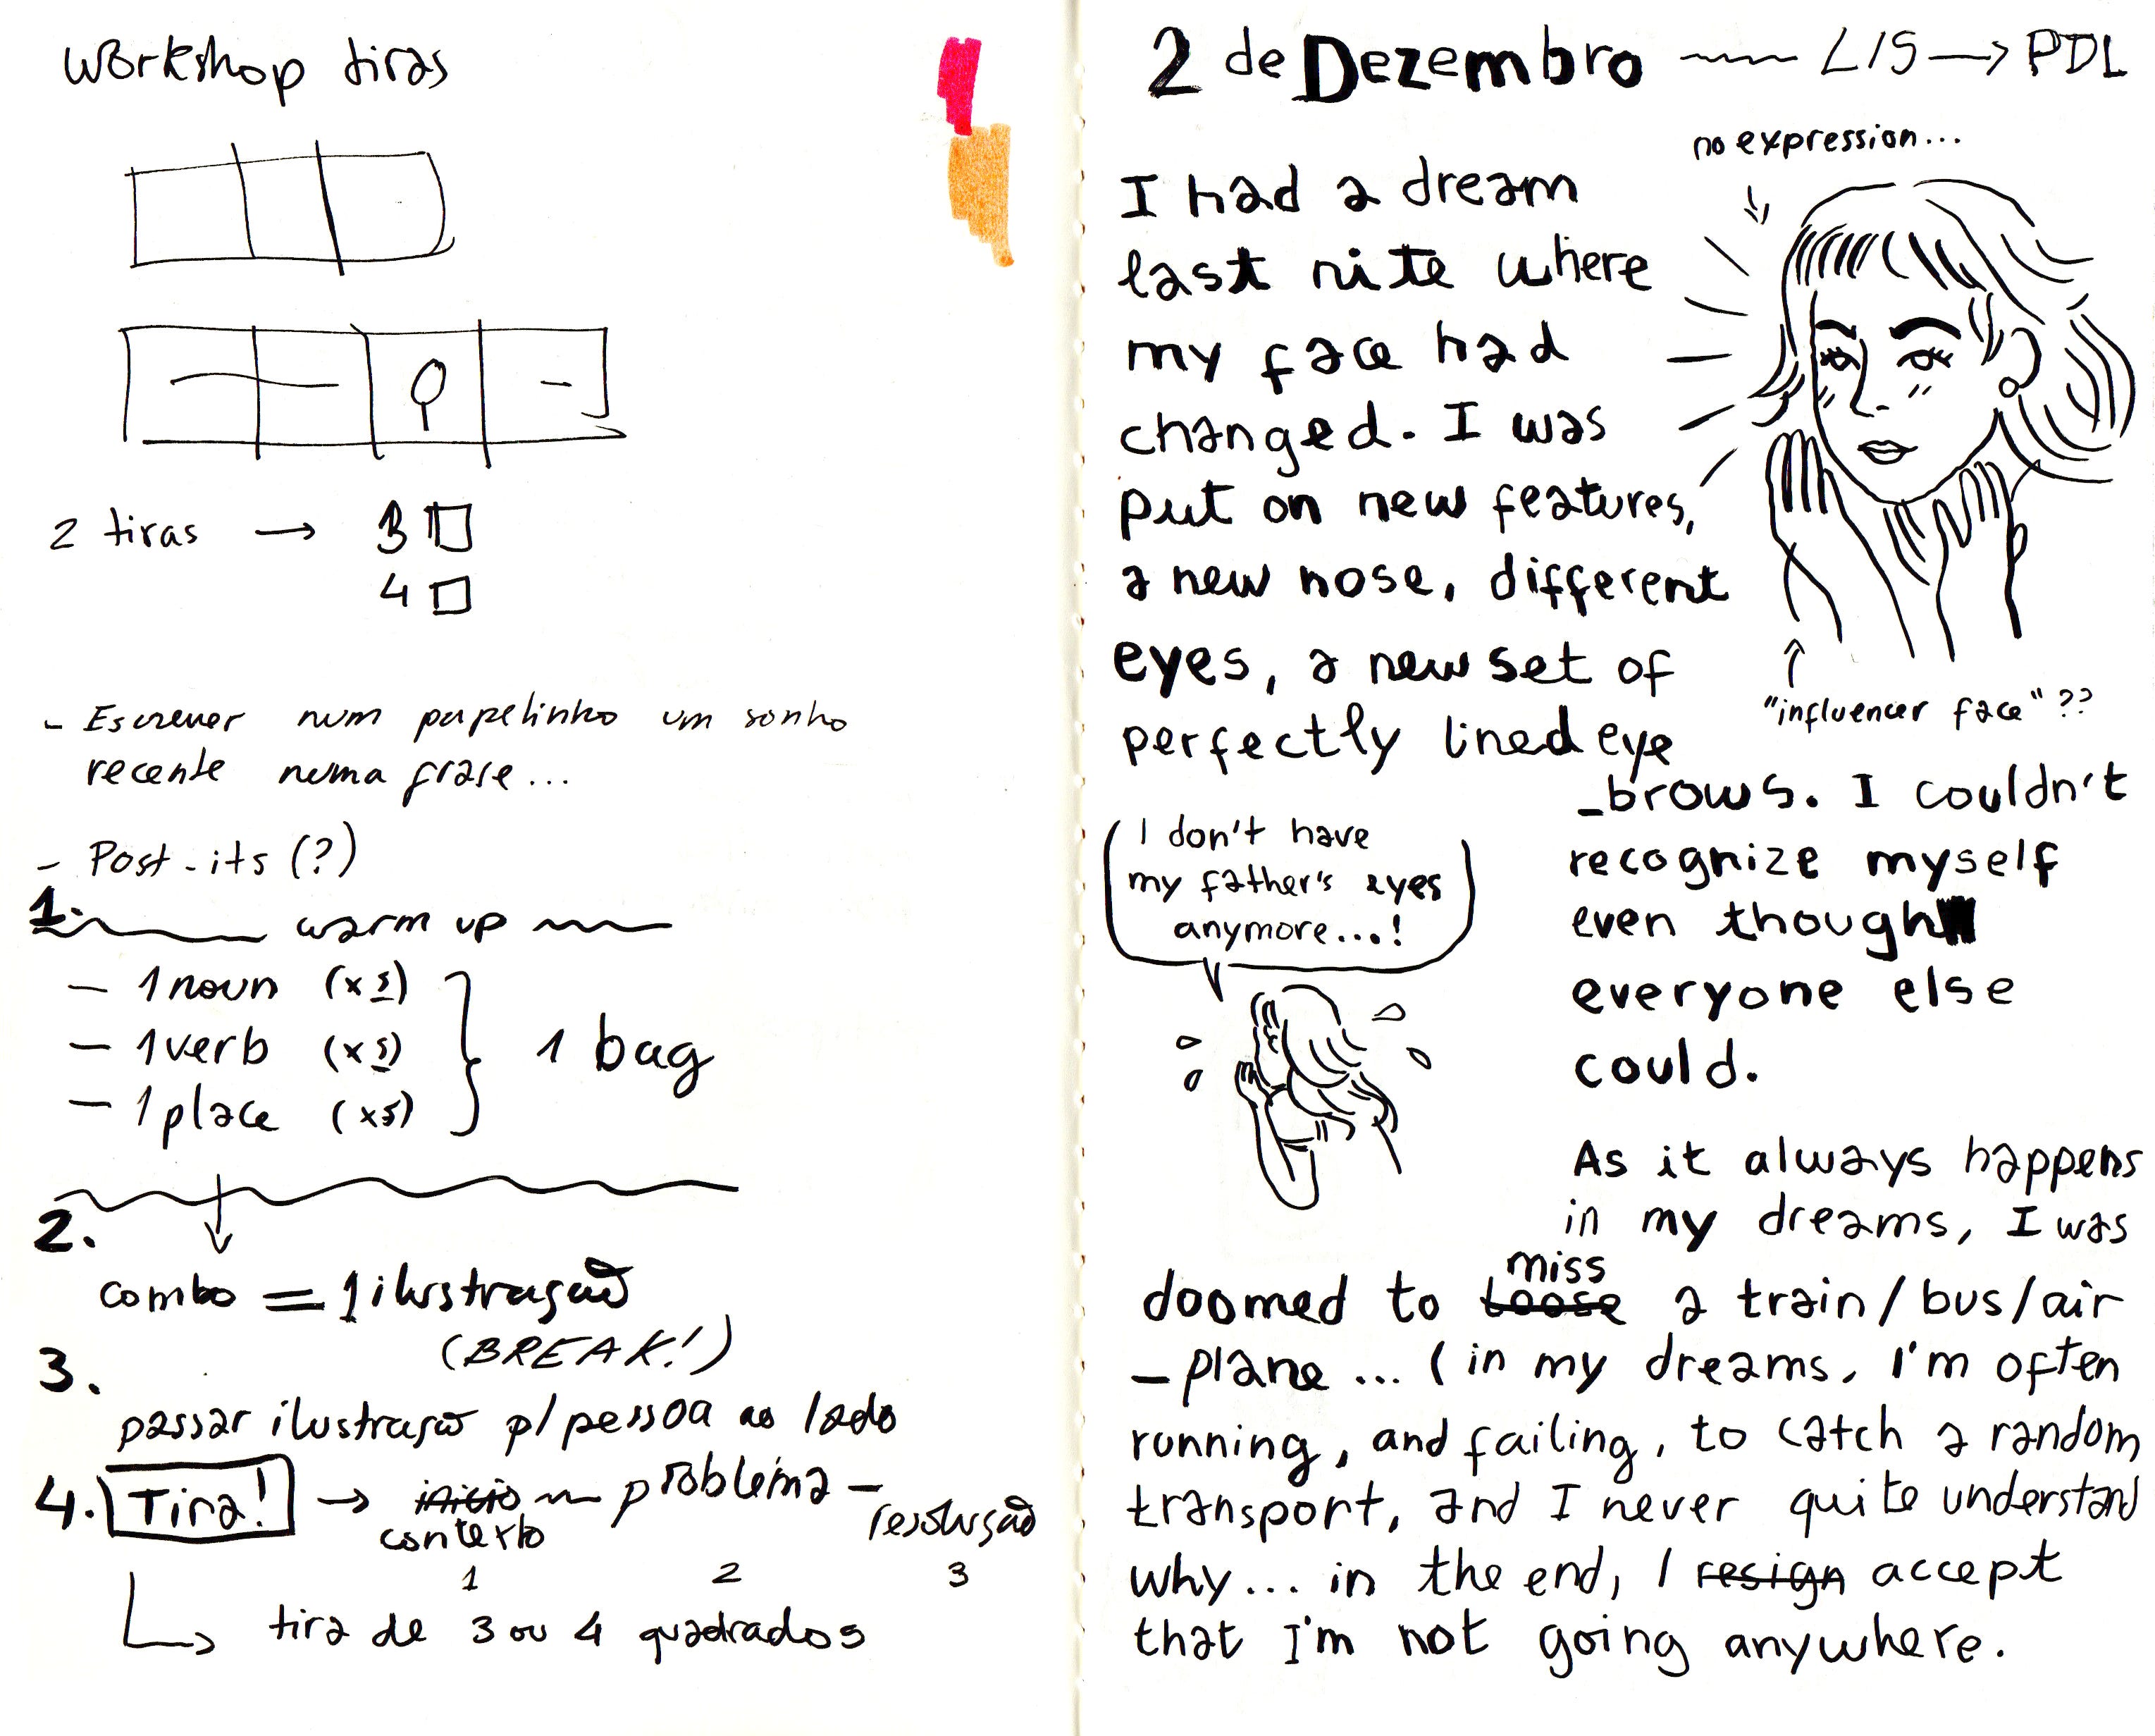 Workshop tiras
2 tiras → 3
4
- Escrever num papelinho um sonho
recente numa frase...
- Post-its (?)
1.
warm up
- 1 noun (x5)
- 1 verb (x5)
- 1 place (x5)
1 bag
2.
combo = 1 ilustração
(BREAK!)
3.
passar ilustração p/ pessoa ao lado
4. Tira! → início problema - resolução
contexto
1 2 3
tira de 3 ou 4 quadrados
2 de Dezembro LIS → PDL
no expression...
I had a dream
last nite where
my face had
changed. I was
put on new features,
a new nose, different
eyes, a new set of
perfectly lined eye
_brows. I couldn't
recognize myself
even though
everyone else
could.
"influencer face"??
I don't have
my father's eyes
anymore...!
As it always happens
in my dreams, I was
miss
doomed to loose a train/bus/air
_plane... (in my dreams, I'm often
running, and failing, to catch a random
transport, and I never quite understand
why... in the end, I resign accept
that I'm not going anywhere.